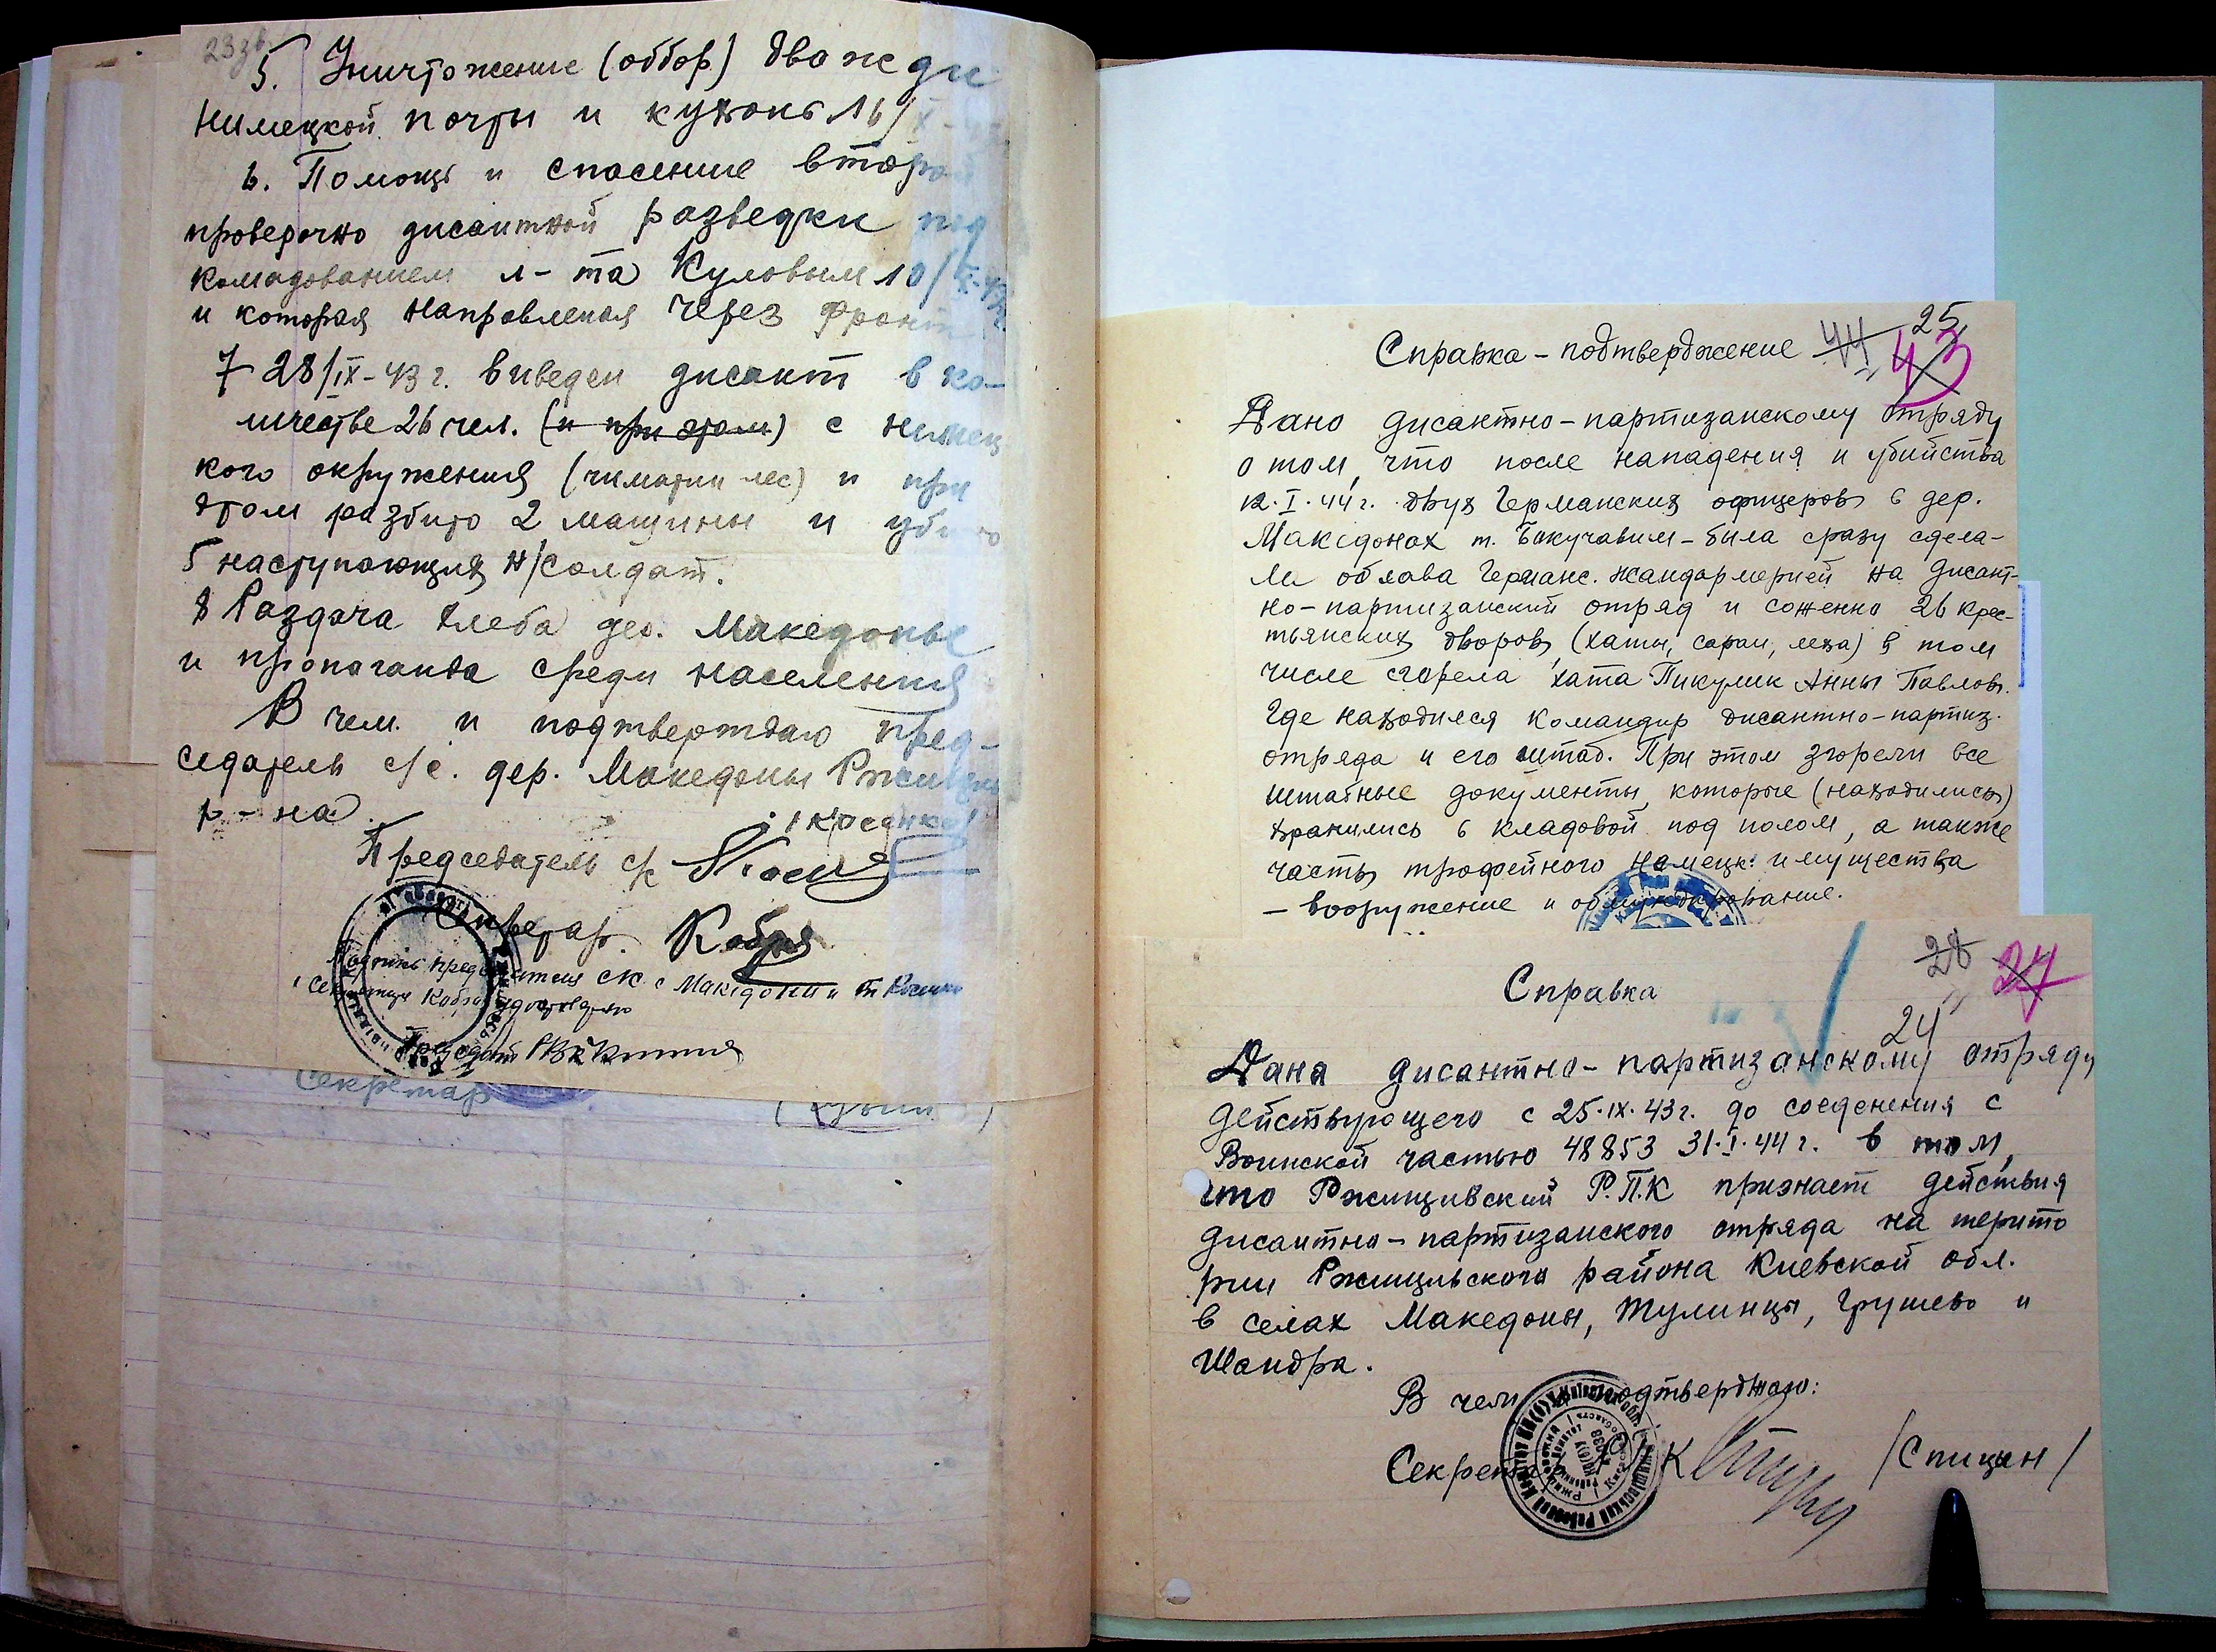 23зв
5. Уничтожение (оббор) дважди
нимецкой почты и кухонь 16/X-
6. Помощь и спасение второй
проверочно дисантной разведки под
комадованием л-та Куловым 10/IX-43г
и которая направленая через фронт
7 28/IX-43 г. виведен дисант в ко-
личестве 26 чел. (и при этом) с нимец
кого окружения (лес) и при
этом разбито 2 машины и убито
5 наступающих н/солдат.
8 Раздача хлеба дер. Македоны
и пропаганда среди населения
В чем и подтверждаю пред-
седатель с/с. дер. Македоны Ржищев
р-на.
/Косенко/
Председатель с/с
Секретар.
Подпись председателя с/с с Македони и
Секретар
Справка-подтверждение 44 25 43
Дано дисантно-партизанскому отряду
о том, что после нападения и убийства
12.I.44г. двух Германских офицеров в дер.
Македонах т. Бакучавим-била сразу сдела-
ли облава Германс. жандармерией на Дисант-
но-партизанский отряд и сожженно 26 крес-
тьянских дворов (хаты, сараи, леза) в том
числе сгорела хата Пикулик Анны Павлов.
Где находился командир дисантно-партиз.
отряда и его штаб. При этом згорели все
штабные документы, которые (находились)
хранились в кладовой под полом, а также
часть трофейного намецк. имущества
- вооружение и обмундирование.
28 27
Справка
24
Дана дисантно-партизанскому отряду
действующего с 25.IX.43г. до соеденения с
Воинской частью 48853 31.I.44г. в том,
что Ржищивский Р.П.К признает действия
дисантно-партизанского отряда на терито
рии Ржищивского района Киевской обл.
в селах Македоны, Тулинцы, Грушево и
Шандра.
В чем подтверджаю:
Секретар К /Спицын/